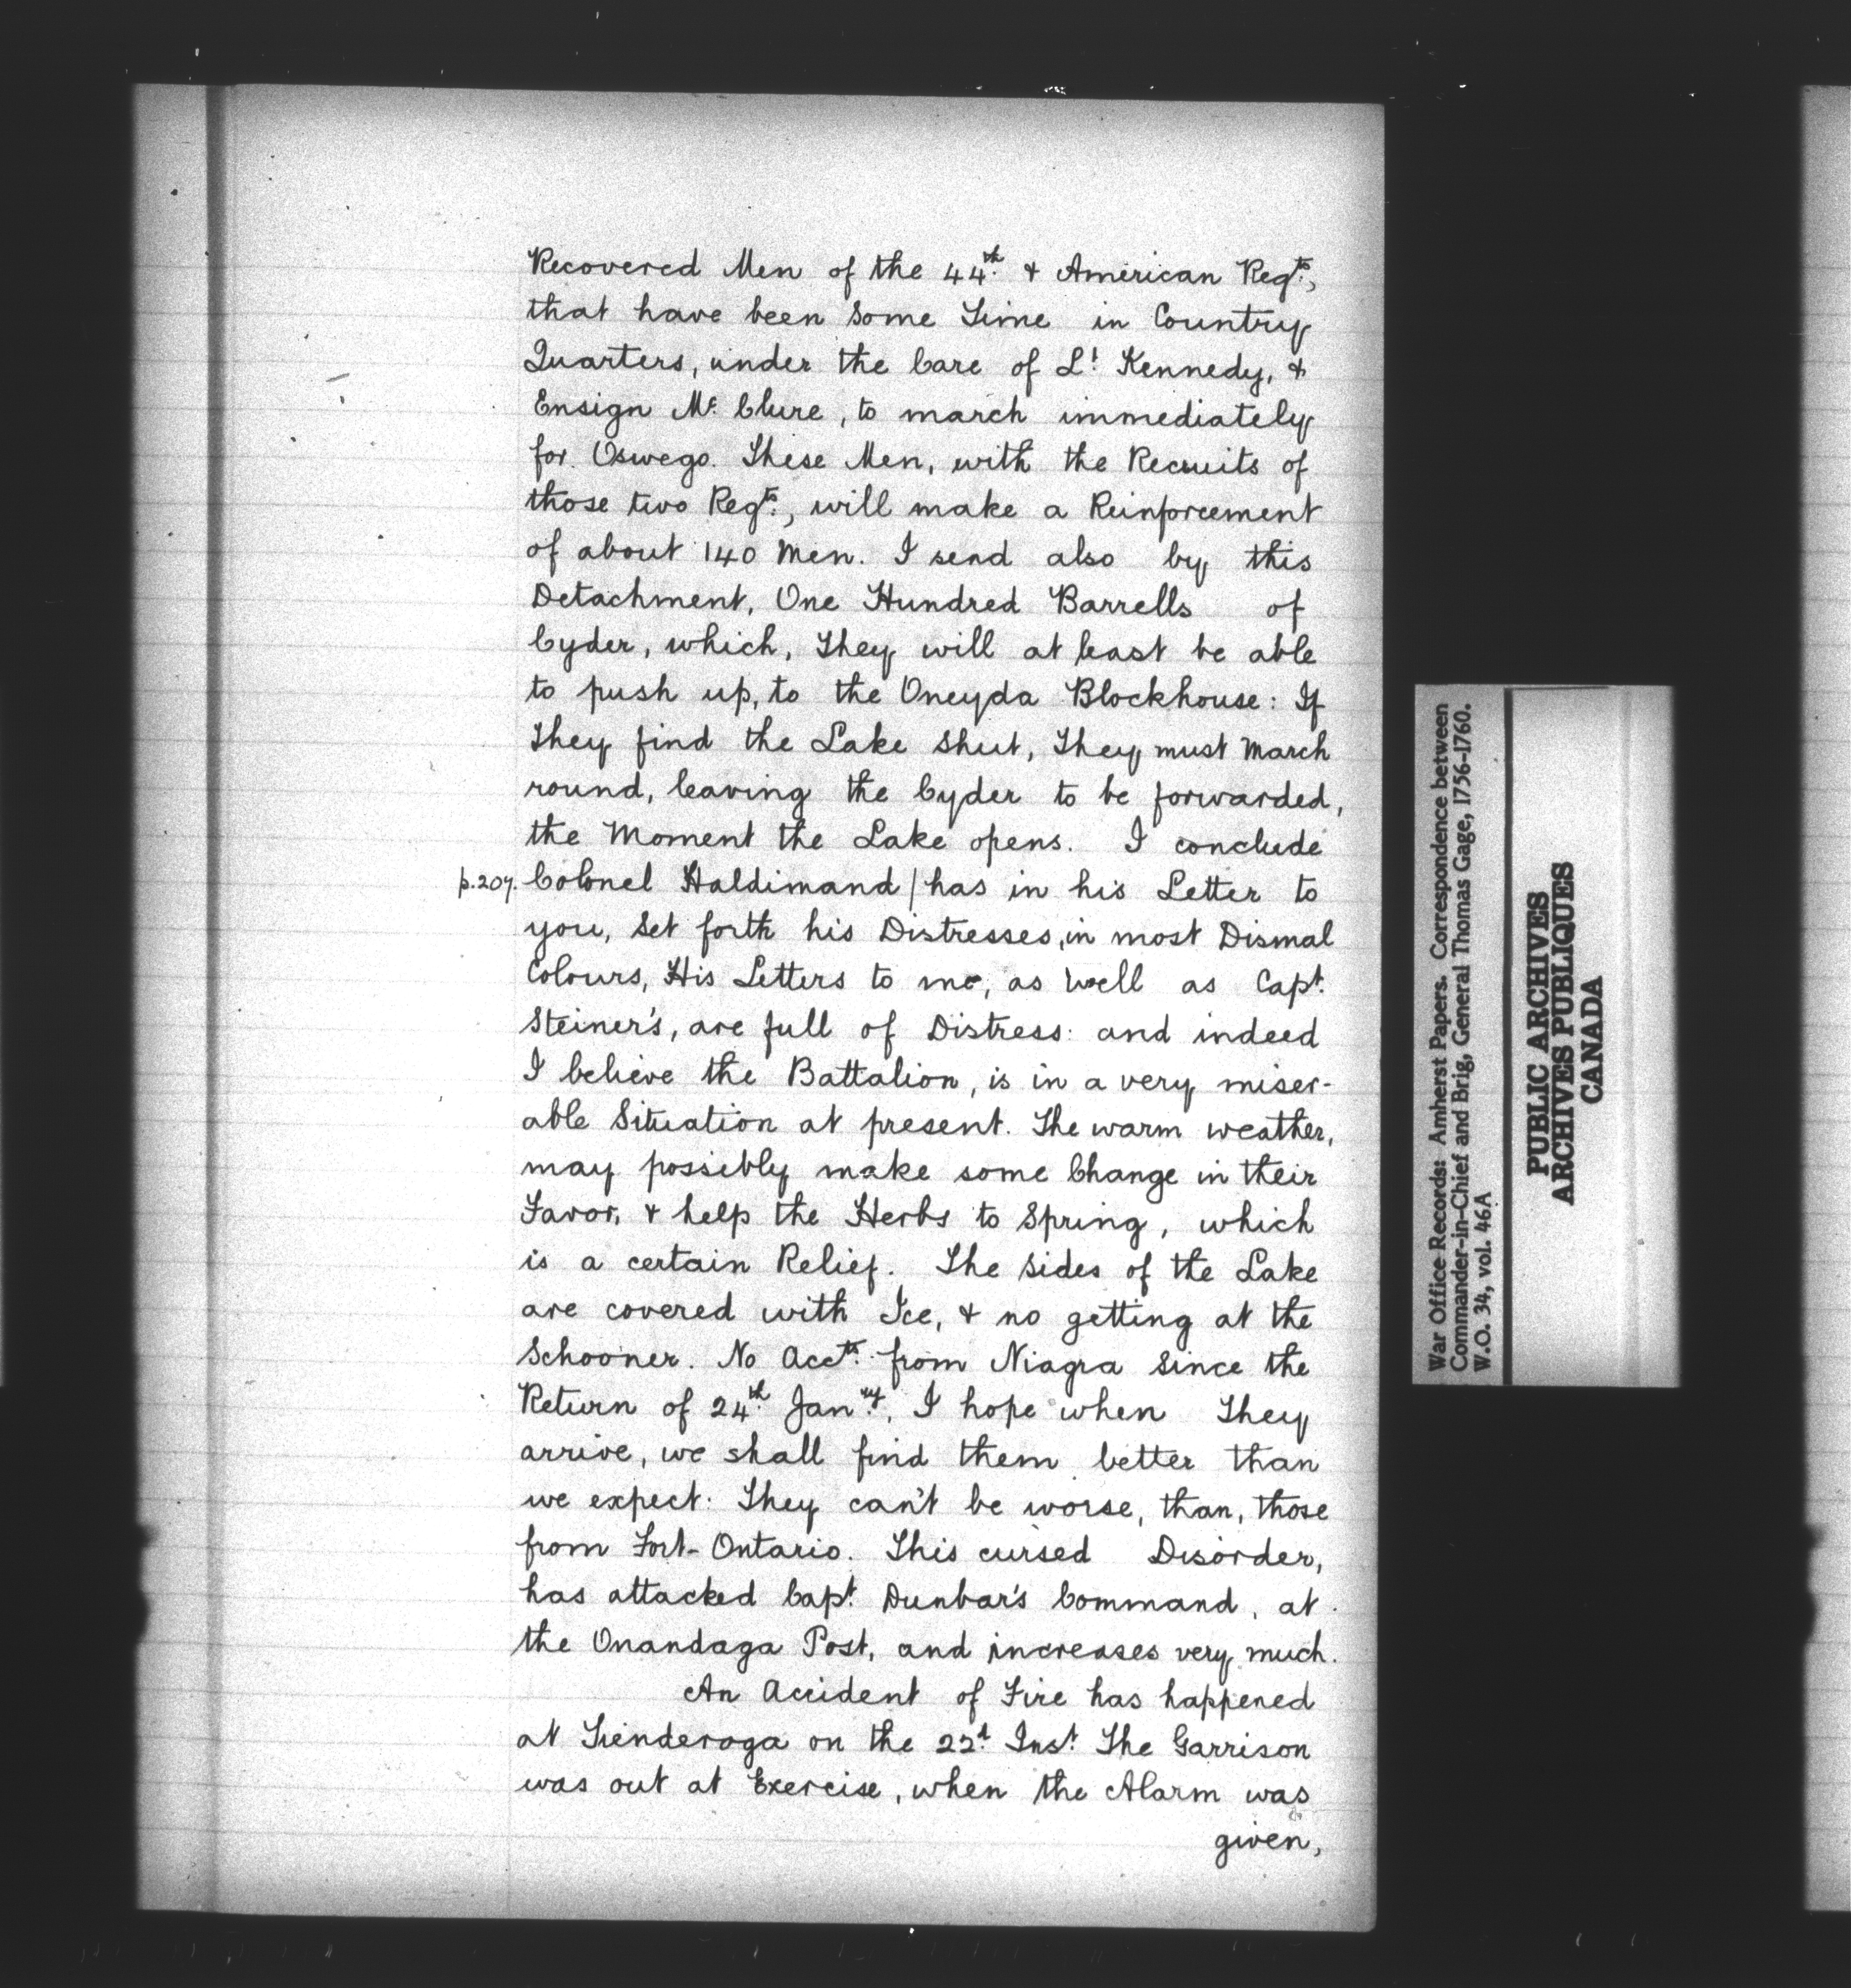 Recovered Men of the 44th & American Regts,
that have been some Time in Country
Quarters, under the Care of Lt Kennedy, &
Ensign Mc Clure, to march immediately
for Oswego. These Men, with the Recruits of
those two Regts, will make a Reinforcement
of about 140 Men. I send also by this
Detachment, One Hundred Barrells of
Cyder, which, They will at least be able
to push up, to the Oneyda Blockhouse: If
They find the Lake shut, They must March
round, leaving the Cyder to be forwarded,
the Moment the Lake opens. I conclude
p.207. Colonel Haldimand / has in his Letter to
you, set forth his Distresses, in most Dismal
Colours, His Letters to me, as well as Capt.
Steiner's, are full of Distress: and indeed
I believe the Battalion, is in a very miser-
able Situation at present. The warm weather,
may possibly make some Change in their
Favor, & help the Herbs to Spring, which
is a certain Relief. The sides of the Lake
are covered with Ice, & no getting at the
Schooner. No Accts. from Niagra since the
Return of 24th Janry, I hope when They
arrive, we shall find them better than
we expect: They can't be worse, than, those
from Fort-Ontario. This cursed Disorder,
has attacked Capt. Dunbar's Command, at
the Onandaga Post, and increases very much.
An Accident of Fire has happened
at Tienderoga on the 22d Inst. The Garrison
was out at Exercise, when the Alarm was
given,
War Office Records: Amherst Papers. Correspondence between
Commander-in-Chief and Brig. General Thomas Gage, 1756-1760.
W.O. 34, vol. 46A
PUBLIC ARCHIVES
ARCHIVES PUBLIQUES
CANADA